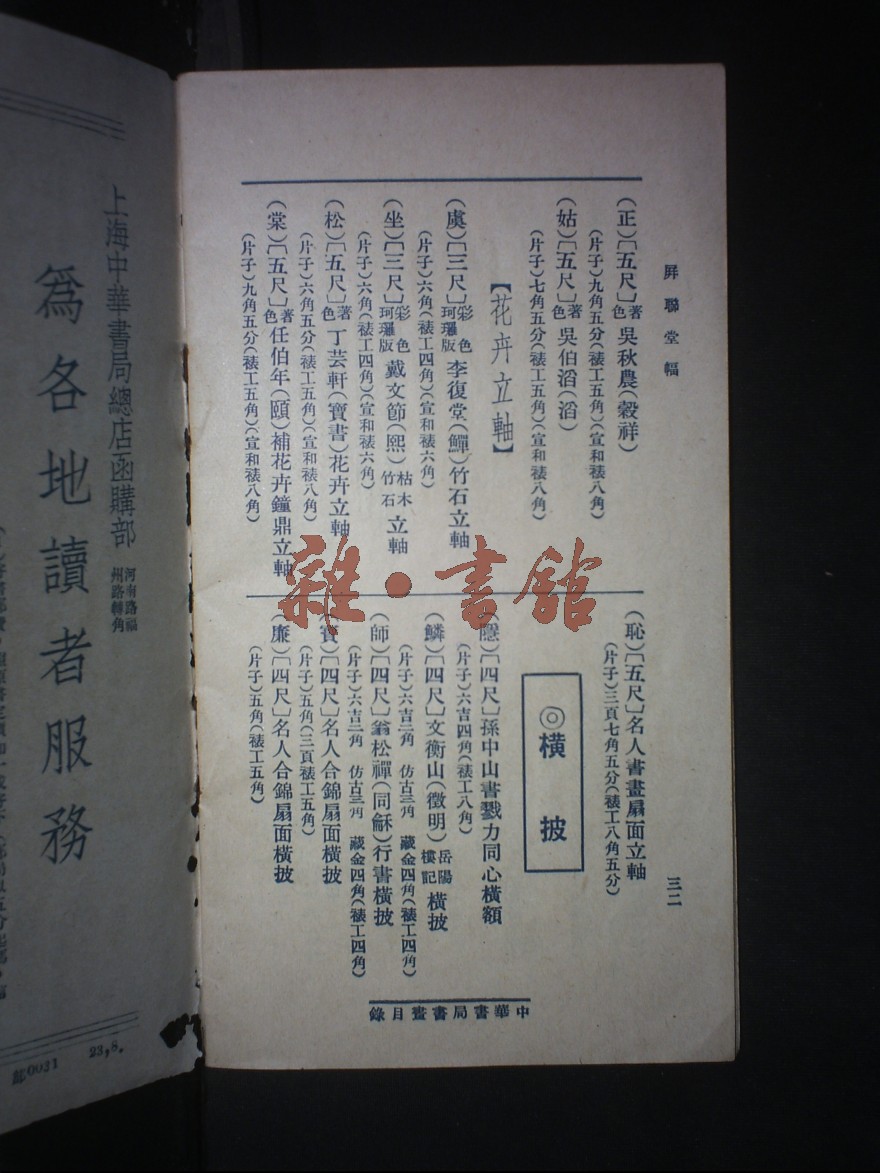 屛聯堂幅
三二
(正)〔五尺〕著色 吳秋農(穀祥)
(片子)九角五分(裱工五角)(宣和裱八角)
(姑)〔五尺〕著色 吳伯滔(滔)
(片子)七角五分(裱工五角)(宣和裱八角)
【花卉立軸】
(虞)〔三尺〕彩色珂瓏版 李復堂(鱓)竹石立軸
(片子)六角(裱工四角)(宣和裱六角)
(坐)〔三尺〕彩色珂瓏版 戴文節(熙)枯木竹石 立軸
(片子)六角(裱工四角)(宣和裱六角)
(松)〔五尺〕著色 丁芸軒(寶書)花卉立軸
(片子)六角五分(裱工五角)(宣和裱八角)
(棠)〔五尺〕著色 任伯年(頤)補花卉鐘鼎立軸
(片子)九角五分(裱工五角)(宣和裱八角)
(恥)〔五尺〕名人書畫扇面立軸
(片子)三頁七角五分(裱工八角五分)
◎橫披
(隱)〔四尺〕孫中山書戮力同心橫額
(片子)六吉四角(裱工八角)
(鱗)〔四尺〕文衡山(徵明)岳陽樓記 橫披
(片子)六吉二角 仿古三角 藏金四角(裱工四角)
(師)〔四尺〕翁松禪(同龢)行書橫披
(片子)六吉二角 仿古三角 藏金四角(裱工四角)
(賓)〔四尺〕名人合錦扇面橫披
(片子)五角(三頁裱工五角)
(廉)〔四尺〕名人合錦扇面橫披
(片子)五角(裱工五角)
中華書局書畫目錄
上海中華書局總店函購部 河南路福州路轉角
爲各地讀者服務
23,8.
0031
雜·書館